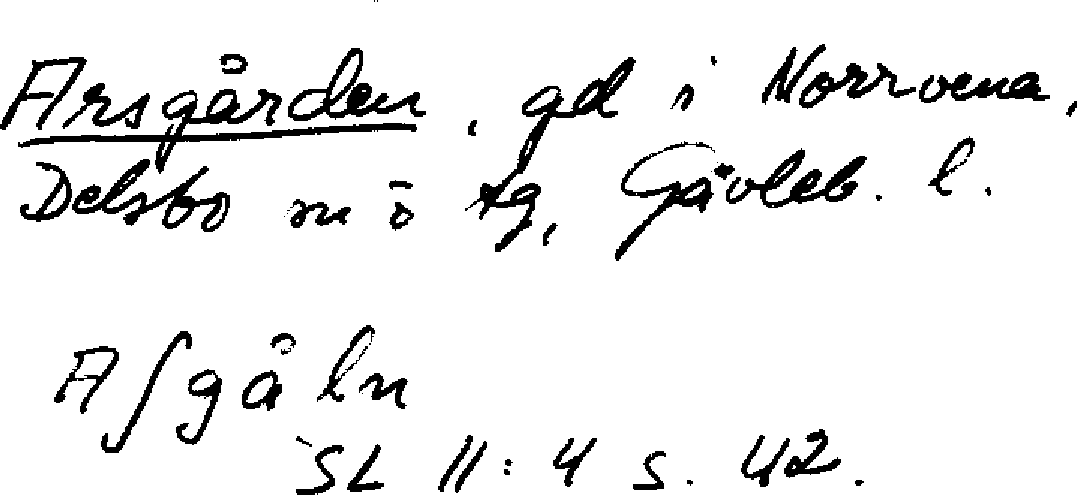 Arsgården, gd i Norrvena,
Delsbo sn o tg, Gävleb. l.
Aʃgå ln
SL 11:4 s. 42.